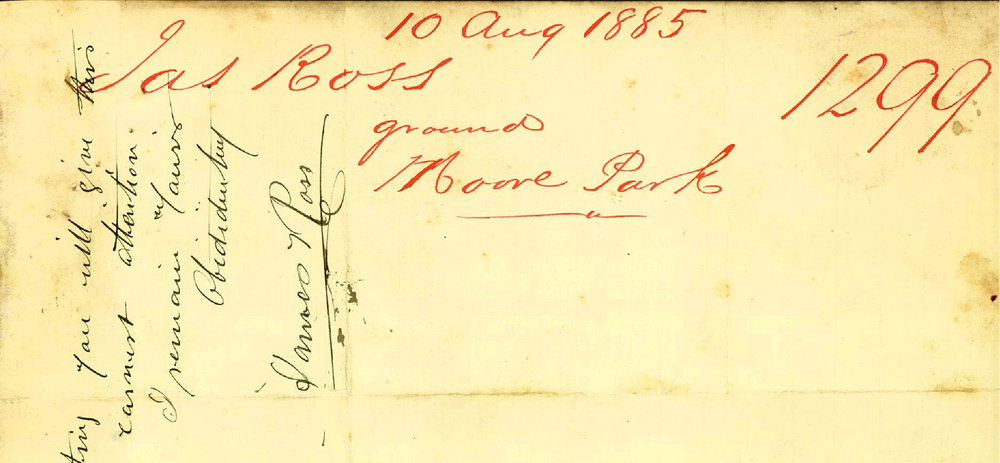 10 Aug 1885
Jas Ross
1299
ground
Moore Park
you will give this
earnest attention.
I remain Yours
Obidiently
James Ross